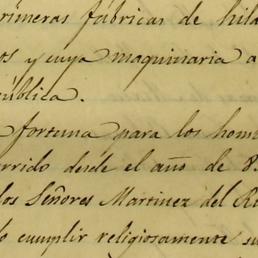 primeras fábricas de hila
os y cuya maquinaria a
pública.
fortuna para los hom
rrido desde el año de 8
los Señores Martinez del R
o cumplir religiosamente su